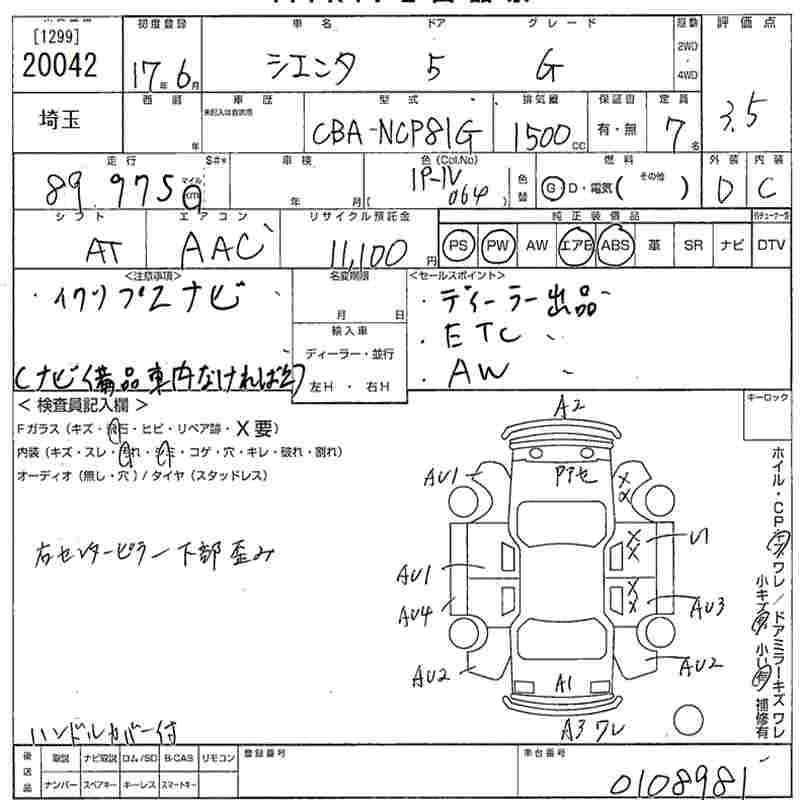 [1299]
20042
初度登録
17年6月
車名
シエンタ
ドア
5
グレード
G
駆動
2WD
4WD
評価点
3.5
埼玉
西暦
年
車歴
未記入は自家用
型式
CBA-NCP81G
排気量
1500cc
保証書
有・無
定員
7名
走行
89,975
マイル
km
S#*
車検
年 月
色(Col.No)
064
色替
燃料
G D・電気( その他 )
外装
D
内装
C
シフト
AT
エアコン
AAC
リサイクル預託金
11,100円
純正装備品
PS PW AW エアB ABS 革 SR ナビ DTV
<注意事項>
・イクリプスナビ
(ナビ備品車内なければ
名変期限
月 日
輸入車
ディーラー・並行
左H ・ 右H
<セールスポイント>
・ディーラー出品
・ETC
・AW
<検査員記入欄>
Fガラス(キズ・飛石・ヒビ・リペア跡・X要)
内装(キズ・スレ・汚れ・シミ・コゲ・穴・キレ・破れ・割れ)
オーディオ(無し・穴)/タイヤ(スタッドレス)
右センターピラー下部歪み
ハンドルカバー付
キーロック
A2
AU1
X
X
XX
AU1
XX
AU4
AU3
AU2
AU2
A1
A3ワレ
ホイル・CPキズワレ/ドアミラーキズワレ
補修有
後送品
取説 ナビ取説 ロム/SD B-CAS リモコン
ナンバー スペアキー キーレス スマートキー
登録番号
車台番号
0108981